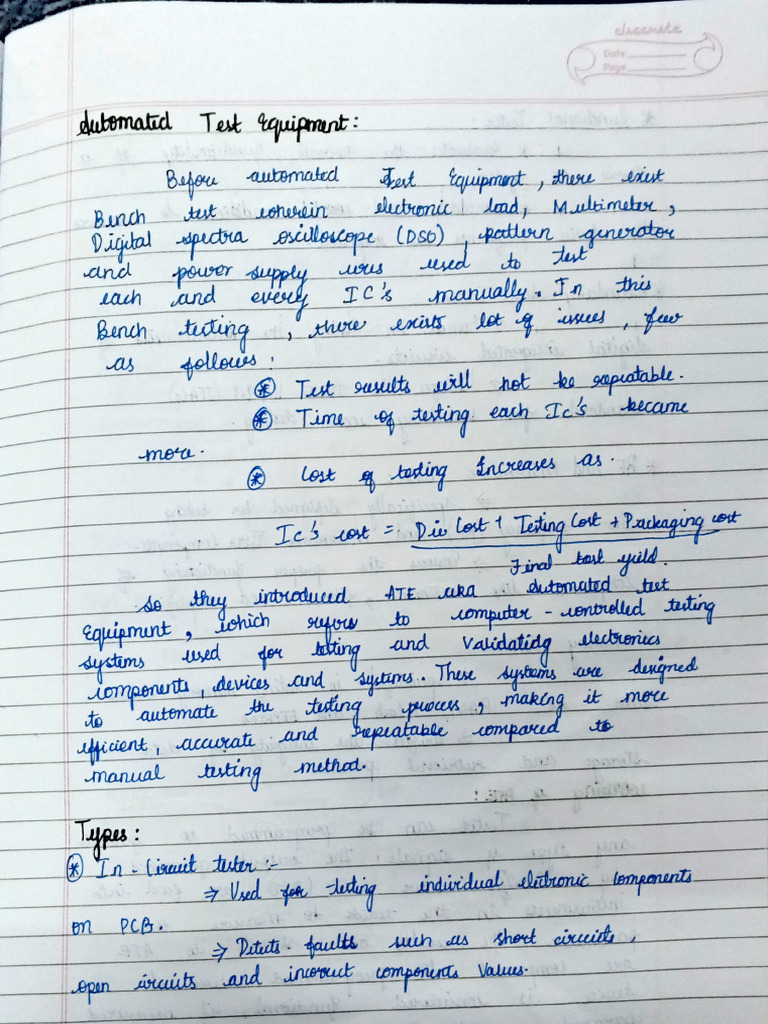 classmate
Date
Page
Automated Test Equipment:
Before automated Test Equipment, there exist
Bench test wherein electronic load, Multimeter,
Digital spectra oscilloscope (DSO), pattern generator
and power supply were used to test
each and every IC's manually. In this
Bench testing, there exists lot of issues, few
as follows:
* Test results will not be repeatable.
* Time of testing each Ic's became
more.
* Cost of testing Increases as.
Ic's cost = Die Cost + Testing Cost + Packaging cost
Final test yield.
So they introduced ATE aka Automated test
Equipment, which refers to computer-controlled testing
systems used for testing and Validating electronics
components, devices and systems. These systems are designed
to automate the testing process, making it more
efficient, accurate and repeatable compared to
manual testing method.
Types:
* In-Circuit tester:-
⇒ Used for testing individual electronic components
on PCB.
⇒ Detects faults such as short circuits,
open circuits and incorrect components Values.